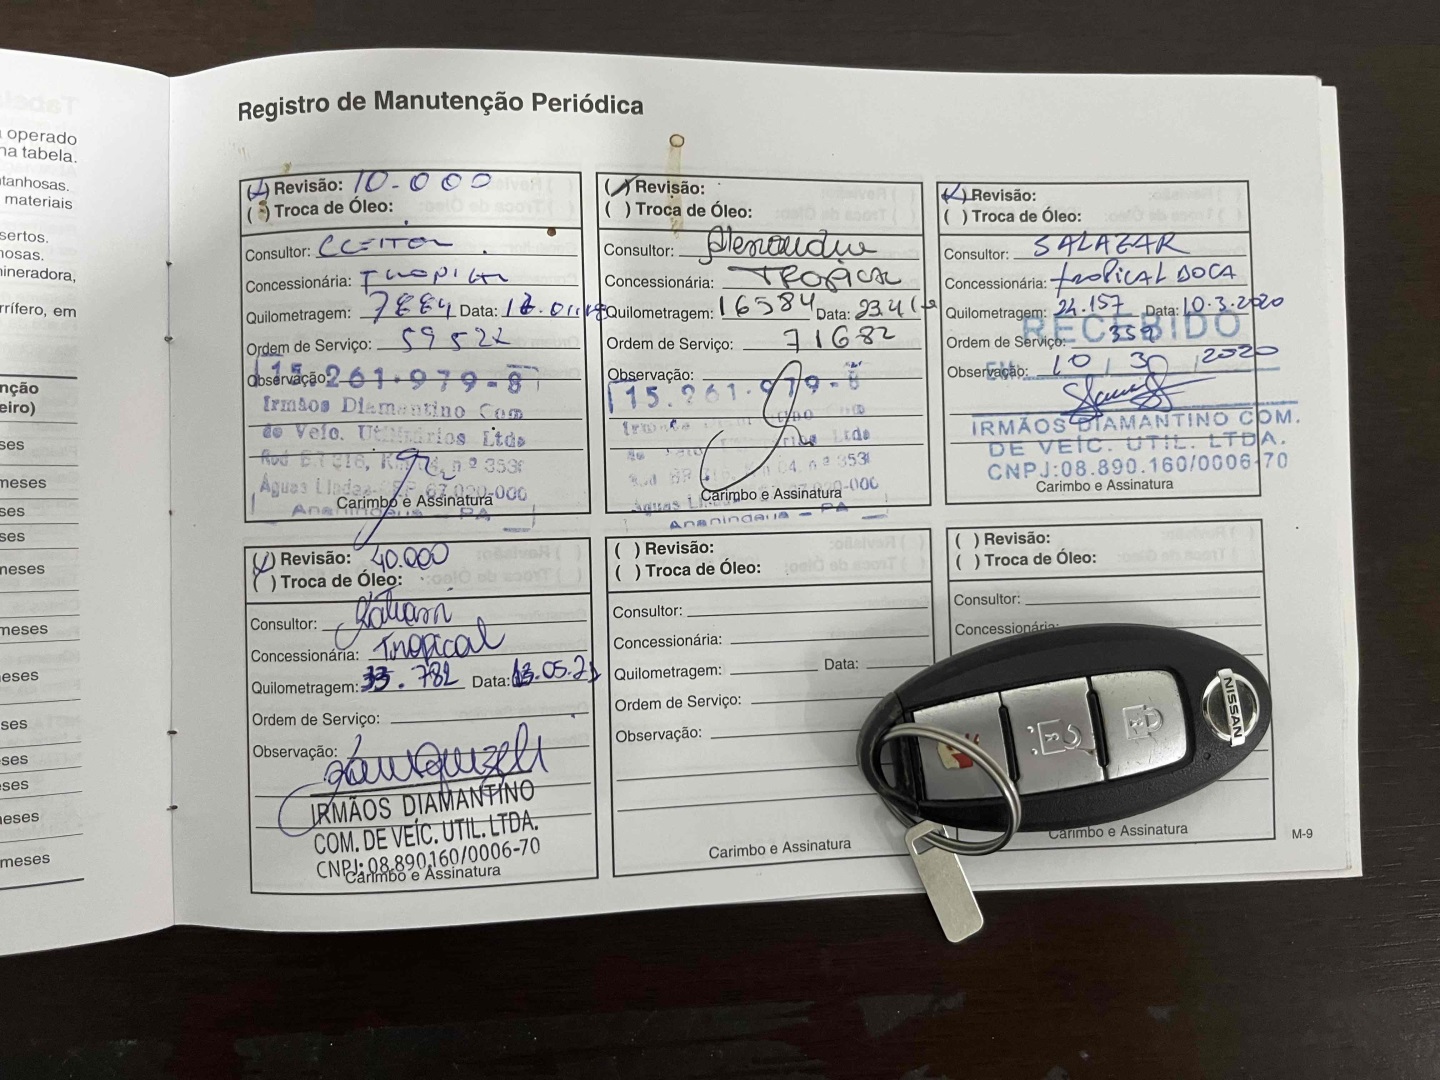 operado
na tabela.
tanhosas.
materiais
sertos.
nosas.
ineradora,
rrífero, em
nção
eiro)
ses
meses
ses
ses
neses
ses
meses
eses
ses
ses
ses
eses
meses
Registro de Manutenção Periódica
( ) Revisão: 10.000
( ) Troca de Óleo:
Consultor: CLEITON
Concessionária: Tropical
Quilometragem: 7884 Data:
Ordem de Serviço:
Observação:
15.261.979-8
Irmãos Diamantino Com
de Veíc. Utilitários Ltda
nº 353
67.020-000
Carimbo e Assinatura
Ananindeua - PA
( ) Revisão:
( ) Troca de Óleo:
Consultor: Alexandre
Concessionária: TROPICAL
Quilometragem: 16584 Data: 23.4
Ordem de Serviço: 71682
Observação:
15.261.979-8
Ltda
nº 353
-000
Carimbo e Assinatura
Ananindeua - PA
( ) Revisão:
( ) Troca de Óleo:
Consultor: SALAZAR
Concessionária: tropical DOCA
Quilometragem: 24.157 Data: 10.3.2020
RECEBIDO
Ordem de Serviço:
Observação: 10 / 30 / 2020
IRMÃOS DIAMANTINO COM.
DE VEÍC. UTIL. LTDA.
CNPJ:08.890.160/0006-70
Carimbo e Assinatura
( ) Revisão: 40.000
( ) Troca de Óleo:
Consultor:
Concessionária: Tropical
Quilometragem: 33.782 Data: 13.05.21
Ordem de Serviço:
Observação:
IRMÃOS DIAMANTINO
COM. DE VEÍC. UTIL. LTDA.
CNPJ: 08.890.160/0006-70
Carimbo e Assinatura
( ) Revisão:
( ) Troca de Óleo:
Consultor:
Concessionária:
Quilometragem: Data:
Ordem de Serviço:
Observação:
Carimbo e Assinatura
( ) Revisão:
( ) Troca de Óleo:
Consultor:
Concessionária:
NISSAN
Carimbo e Assinatura
M-9